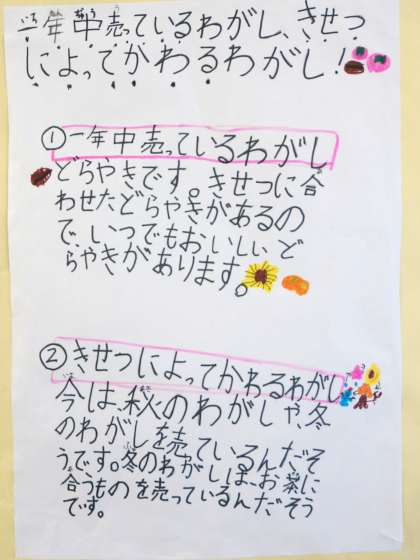 一年中売っているわがし、きせつ
によってかわるわがし!
①一年中売っているわがし
どらやきです。きせつに合
わせたどらやきがあるの
で、いつでもおいしいど
らやきがあります。
②きせつによってかわるわがし
今は、秋のわがしや、冬
のわがしを売っているんだそ
うです。冬のわがしは、お茶に
合うものを売っているんだそう
です。